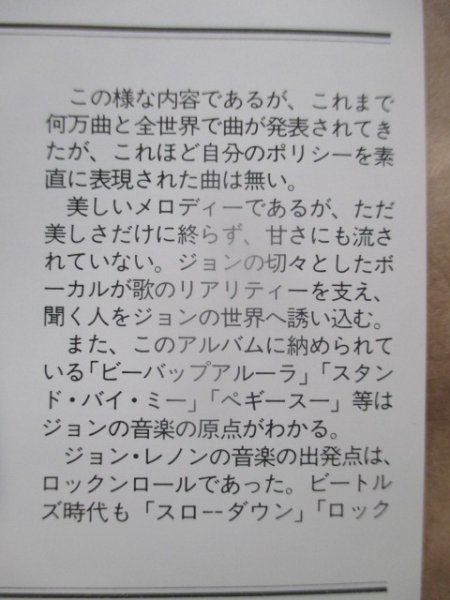 この様な内容であるが、これまで
何万曲と全世界で曲が発表されてき
たが、これほど自分のポリシーを素
直に表現された曲は無い。
美しいメロディーであるが、ただ
美しさだけに終らず、甘さにも流さ
れていない。ジョンの切々としたボ
ーカルが歌のリアリティーを支え、
聞く人をジョンの世界へ誘い込む。
また、このアルバムに納められて
いる「ビーバップアルーラ」「スタン
ド・バイ・ミー」「ペギースー」等は
ジョンの音楽の原点がわかる。
ジョン・レノンの音楽の出発点は、
ロックンロールであった。ビートル
ズ時代も「スロー−ダウン」「ロック